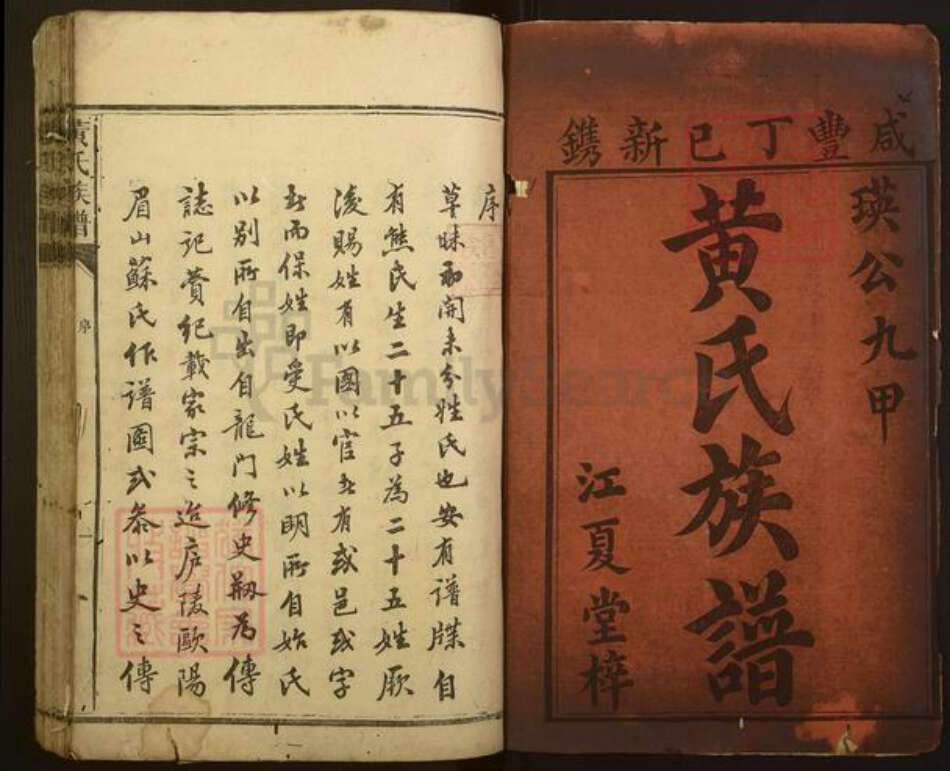 咸豐丁巳新鐫
瑛公九甲
黃氏族譜
江夏堂梓
序
草昧初開未分姓氏也安有譜牒自
有熊氏生二十五子為二十五姓厥
後賜姓有以國以官者有或邑或字
者而保姓即受氏姓以明所自始氏
以別所自出自龍門修史剏為傳
誌記贊紀載家宗之迨庐陵歐陽
眉山蘇氏作譜圖或叅以史之傳
黃氏族譜
序
FamilySearch